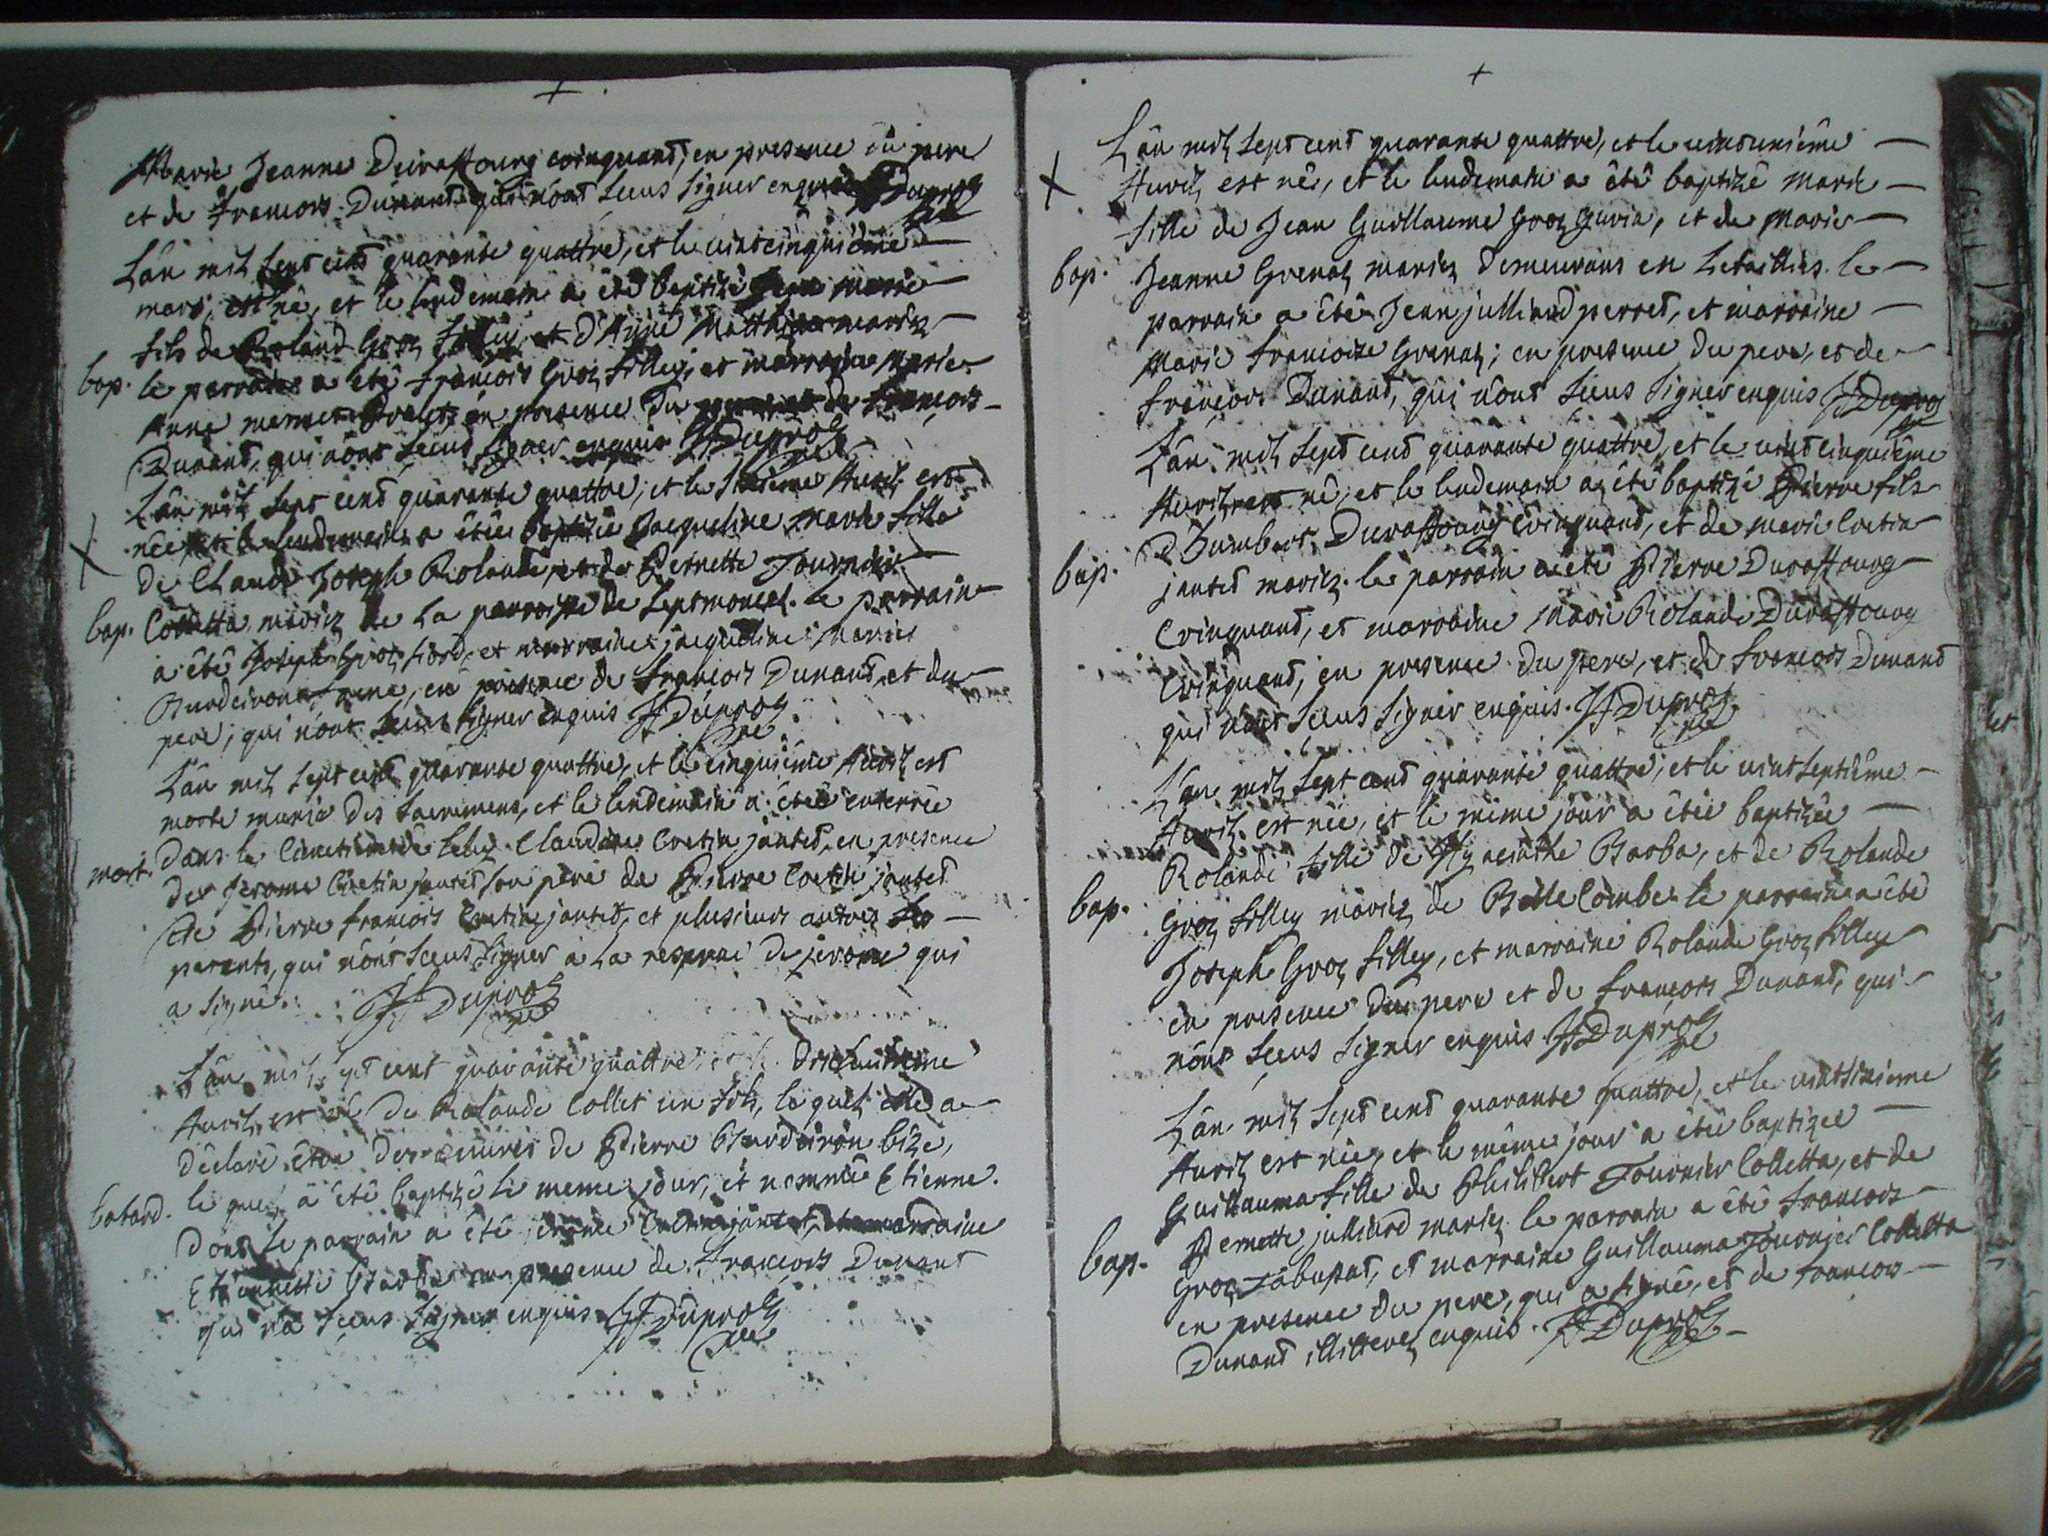 Marie Jeanne Duraffourg coinquand, en presence du pere
et de francois Dunand qui n'ont sceus signer enquis JDuproz
L'ân mil sept cent quarante quattre, et le vintcinquiême
mars, est nê, et le lendemain a été baptizé marie
fils de Roland Groz filley, et d'Anne Matthieu mariez
bap. le parrain a etê françois Groz filley, et marraine Marie
Anne mermet en presence du et de françois
Dunand, qui n'ont sceus signer enquis JDuproz
L'ân mil sept cent quarante quattre, et le Auril est
nêe, et le lendemain a êtée baptizée Jacqueline marie fille
de Claude Joseph Rolande, et de Pernette Fournier
bap. Colletta mariez de la parroisse de septmoncel. le parrain
a êtê Joseph Groz fiord, et marraine jacqueline marie
Burdeiron, en presence de françois Dunand, et du
pere, qui n'ont sceus signer enquis JDuproz
L'ân mil sept cent quarante quattre, et le cinquiême Auril est
morte munie des sacremens, et le lendemain a êtée enterrée
mort. dans le Cimetiere de Claudine Cretin jantet, en presence
de Jerome Cretin jantet son pere de Pierre Cretin jantet
de Pierre francois Cretin jantet, et plusieurs autres
parents, qui n'ont sceus signer a la reserve de jerome qui
a signê. JDuproz
L'ân mil sept cent quarante quattre, et le dixhuitieme
Auril, est nê de Rolande Collet un fils, le quel elle a
dêclarê être des oeuvres de Pierre Burdeiron bize,
batard. le quel a êtê baptizê le meme jour, et nommê Etienne.
Dont le parrain a êtê jerome Cretin jantet, et marraine
Etiennette Barba en presence de françois Dunand
qui n'a sceus signer enquis JDuproz
L'ân mil sept cent quarante quattre, et le vintunième
Auril est nêe, et le lendemain a êtê baptizê marie
fille de Jean Guillaume Groz Gurin, et de Marie
bap. Jeanne Grenat mariez demeurans en le
parrain a êtê Jean julliard perret, et marraine
Marie francoise Grenat; en presence du pere, et de
françois Dunand, qui n'ont sceus signer enquis JDuproz
L'ân mil sept cent quarante quattre, et le vintcinquiême
Auril est nê, et le lendemain a êtê baptizé Pierre fils
d'Humbert Duraffourg Coinquand, et de marie Cretin
bap. jantet mariez. le parrain a êtê Pierre Duraffourg
Coinquand, et marraine Marie Rolande Duraffourg
Coinquand, en presence du pere, et de francois Dunand
qui n'ont sceus signer enquis. JDuproz
L'an mil sept cent quarante quattre, et le vintseptième
Auril est née, et le même jour a êtée baptizêe
Rolande fille de Hyacinthe Barba, et de Rolande
bap. Groz filley mariez de Belle Combe. le parrain a êtê
Joseph Groz filley, et marraine Rolande Groz filley
en presence du pere et de françois Dunand, qui
n'ont sceus signer enquis JDuproz
L'ân mil sept cent quarante quattre, et le vintsixieme
Auril est née, et le même jour a êtée baptizee
Guillauma fille de Philibert Fournier Colletta, et de
bap. Pernette julliard mariez. le parrain a êtê francois
Groz Labupat, et marraine Guillauma Fournier Colletta
en presence du pere, qui a signé, et de francois
Dunand illitteré, enquis. JDuproz